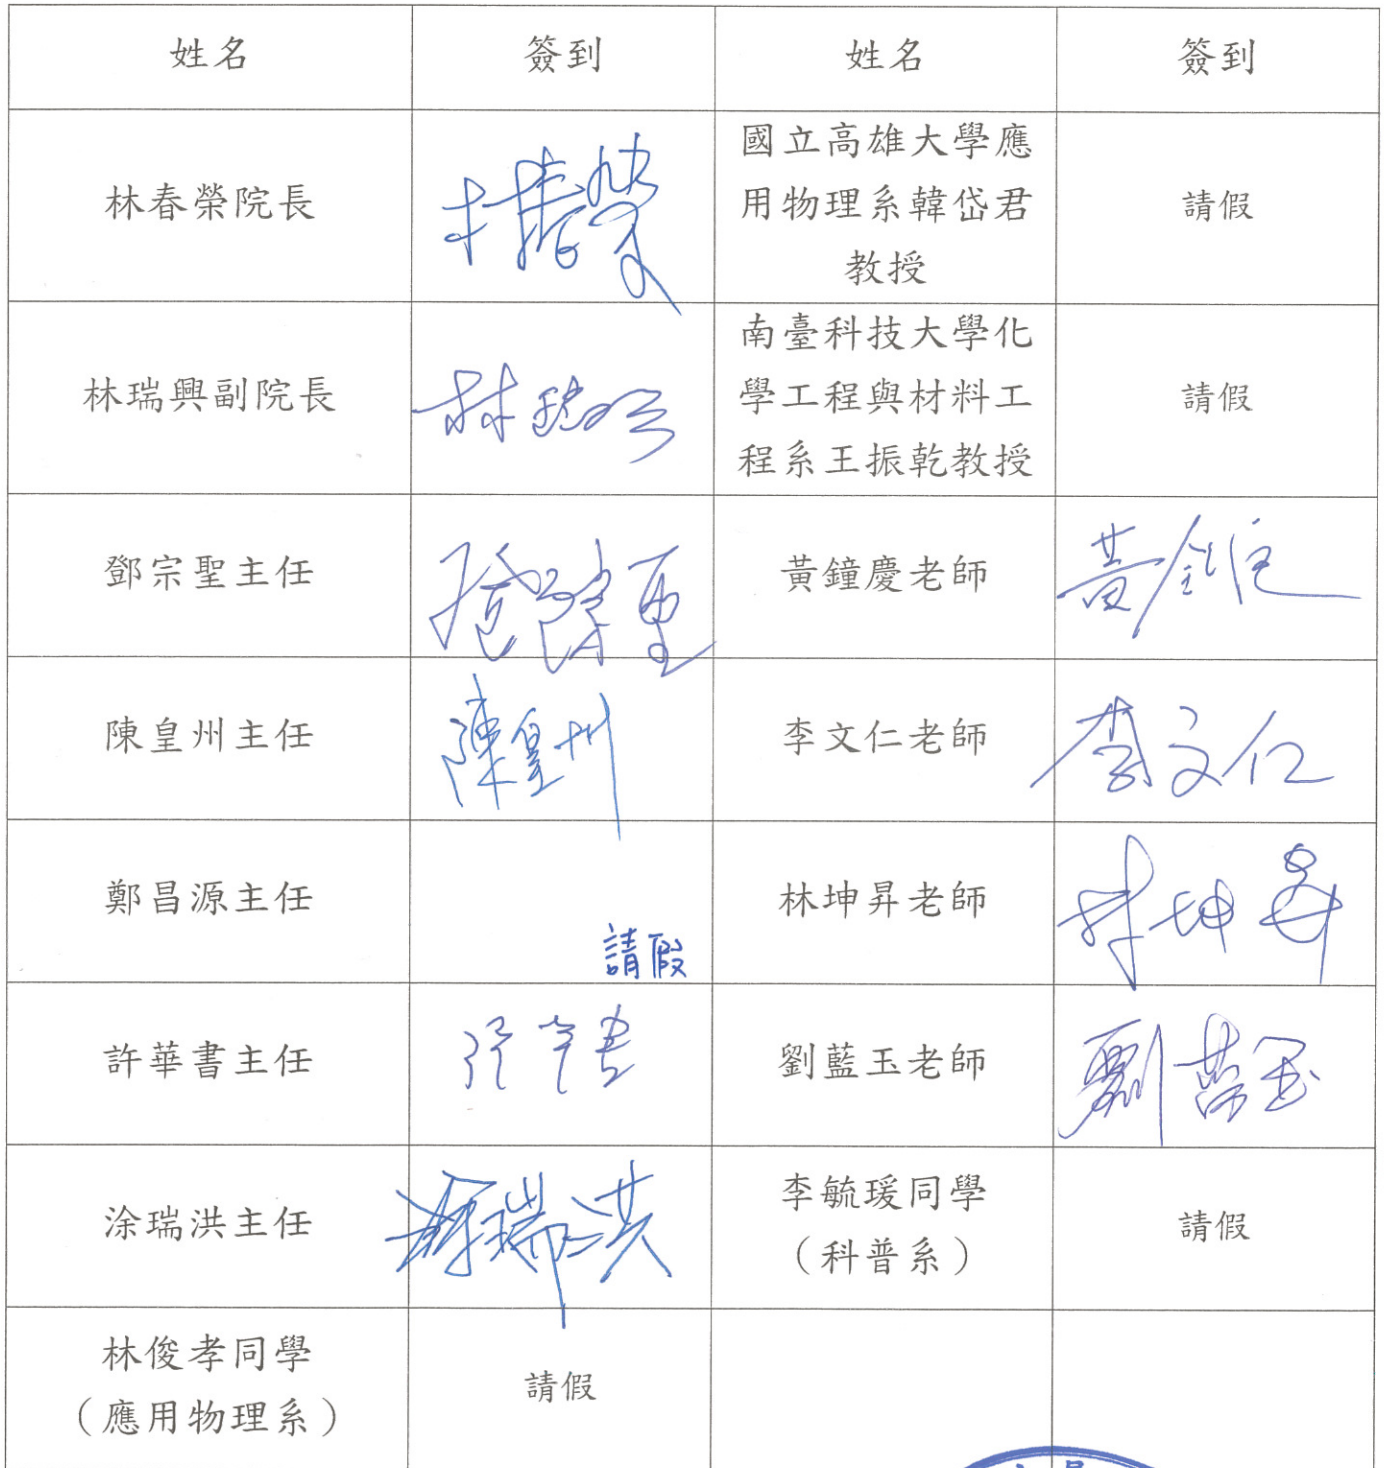 姓名 簽到 姓名 簽到
林春榮院長 林春榮 國立高雄大學應
用物理系韓岱君
教授 請假
林瑞興副院長 林瑞興 南臺科技大學化
學工程與材料工
程系王振乾教授 請假
鄧宗聖主任 鄧宗聖 黃鐘慶老師 黃鐘慶
陳皇州主任 陳皇州 李文仁老師 李文仁
鄭昌源主任 請假 林坤昇老師 林坤昇
許華書主任 許華書 劉藍玉老師 劉藍玉
涂瑞洪主任 涂瑞洪 李毓瑗同學
（科普系） 請假
林俊孝同學
（應用物理系） 請假